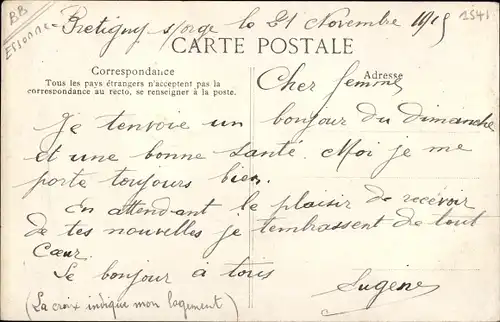 BB
Essonne
Bretigny s/orge le 21 Novembre 1915
1541
CARTE POSTALE
Correspondance
Adresse
Tous les pays étrangers n'acceptent pas la
correspondance au recto, se renseigner à la poste.
Cher femme
Je tenvoie un bonjour du dimanche
et une bonne santé. Moi je me
porte toujours bien.
En attendant le plaisir de recevoir
de tes nouvelles je tembrassent de tout
Cœur.
Le bonjour a tous
Eugène
(La croix indique mon logement)